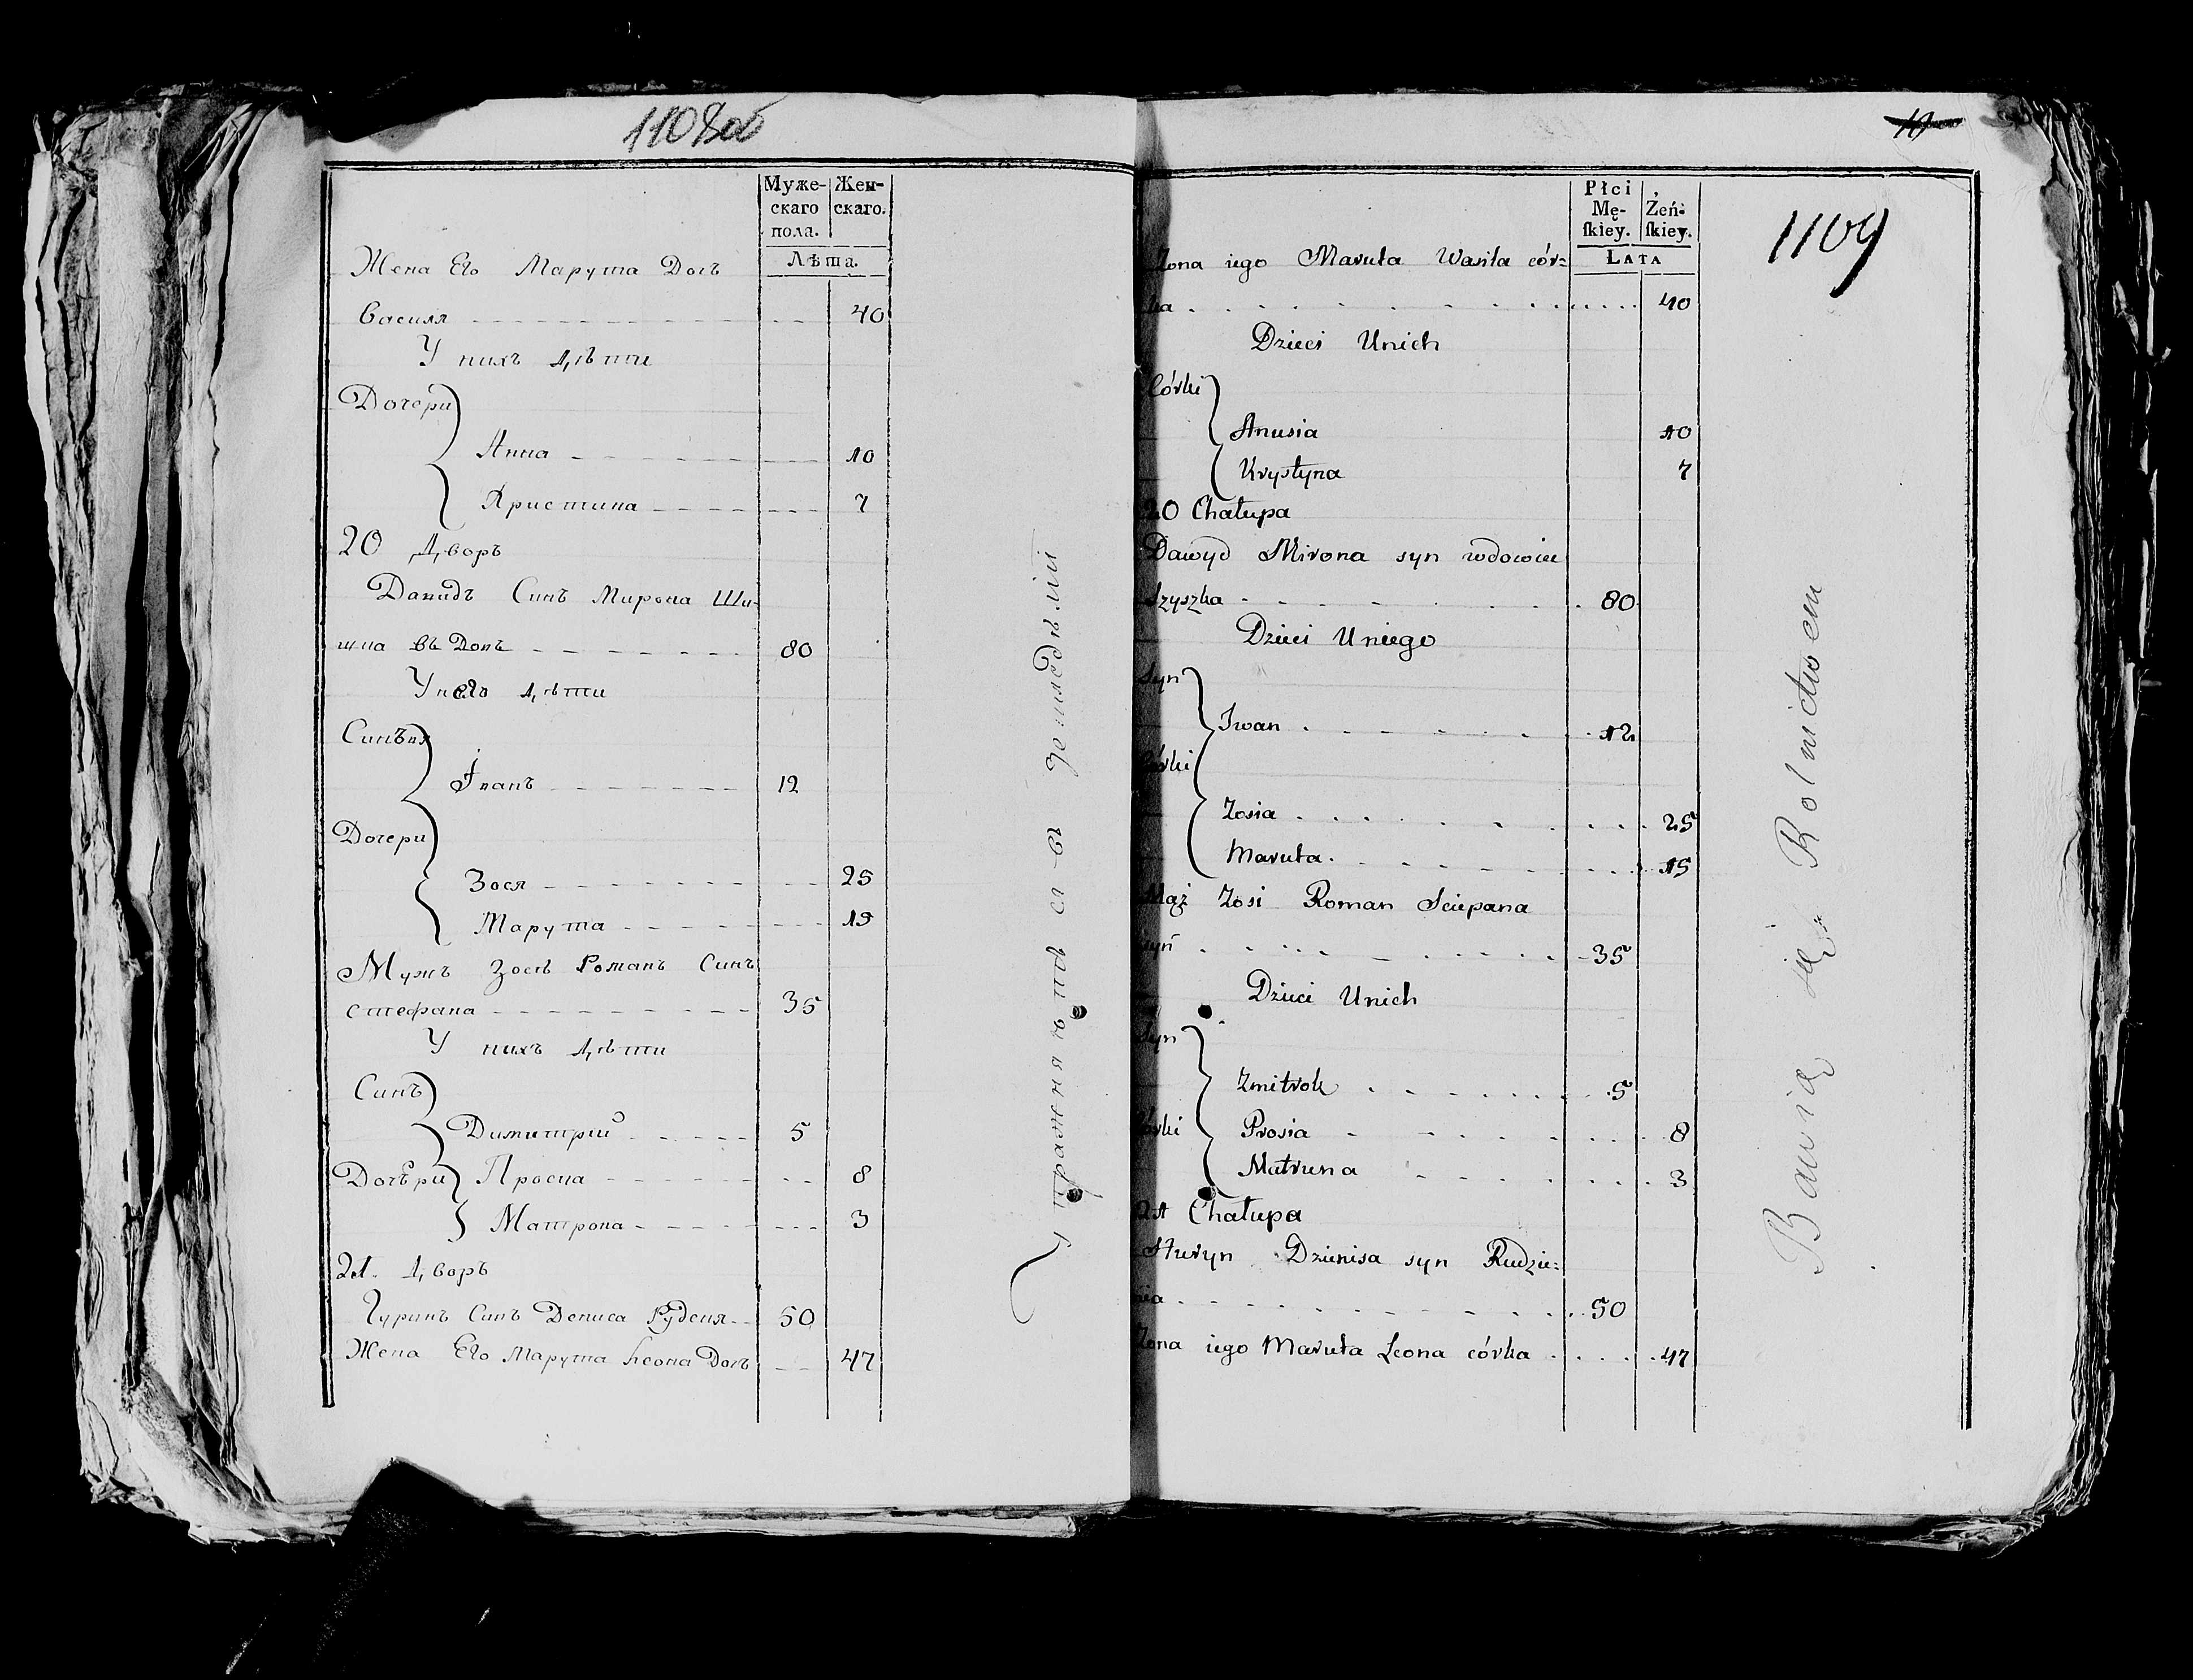 1108об
Муже-
скаго
пола.
Жен-
скаго.
Лѣта.
Жена Его Марута Дочъ
Василя 40
У нихъ дѣти
Дочери
Анна 10
Христина 7
20 Дворъ
Давидъ Синъ Мирона Ши-
шка 80
У него дѣти
Іванъ 12
Дочери
Зося 25
Марута 15
Мужъ Зосѣ Романъ Синъ
стефана 35
У нихъ дѣти
Синъ
Димитрій 5
Дочѣри Прося 8
Матрона 3
21. Дворъ
Гуринъ Синъ Дениса Руденя 50
Жена Его Марута Леона Дочъ 47
упражняютъ ся въ земледѣліи
10
1109
Płci
Mę-
ſkiey.
Żeń-
ſkiey.
LATA
Żona iego Maruta Wasila cór=
ka 40
Dzieci Unich
Córki
Anusia 10
Krystyna 7
20 Chałupa
Dawyd Mirona syn wdowiec
Szyszka 80
Dzieci Uniego
Syn
Iwan 12
Córki
Zosia 25
Maruta 15
Mąż Zosi Roman Sciepana
syn 35
Dzieci Unich
Syn
Zmitrok 5
Córki Prosia 8
Matruna 3
21 Chałupa
Huryn Dzienisa syn Rudzie=
nia 50
Żona iego Maruta Leona córka 47
Bawią się Rolnictwem